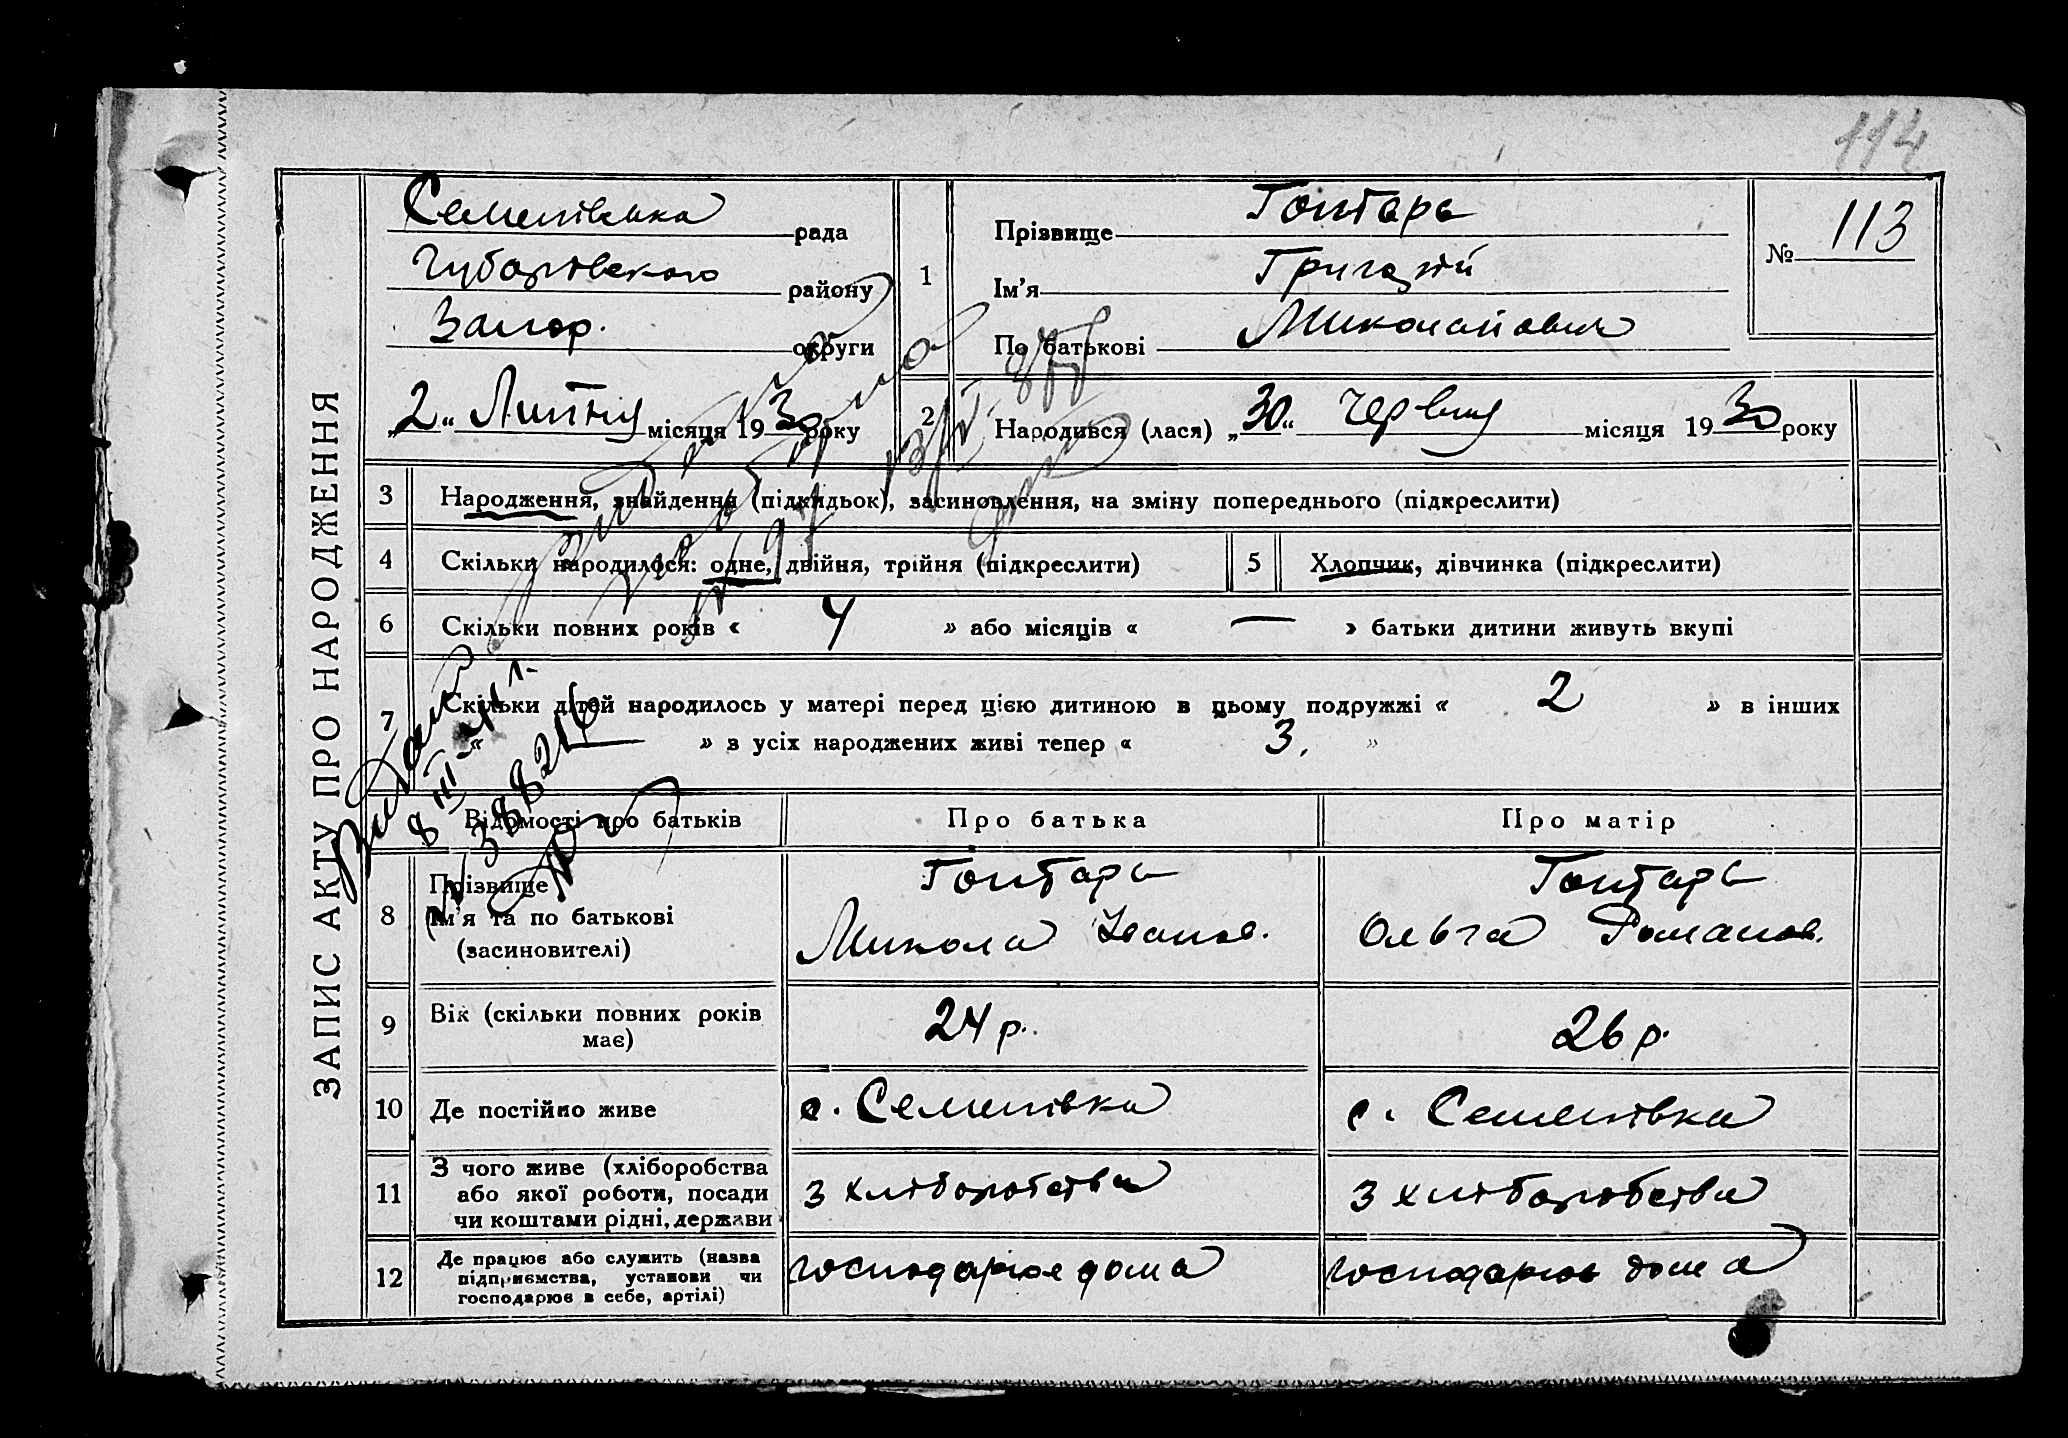 114
ЗАПИС АКТУ ПРО НАРОДЖЕННЯ
Семенівська рада
району
Запор. округи
„2“ Липня місяця 1930 року
1
Прізвище Гонтарь
Ім'я Григорій
По батькові Миколайович
№ 113
2 Народився (лася) „30“ Червня місяця 1930 року
3 Народження, знайдення (підкидьок), засиновлення, на зміну попереднього (підкреслити)
4 Скільки народилося: одне, двійня, трійня (підкреслити)
5 Хлопчик, дівчинка (підкреслити)
6 Скільки повних років « 4 » або місяців « — » батьки дитини живуть вкупі
7 Скільки дітей народилось у матері перед цією дитиною в цьому подружжі « 2 » в інших
« — » з усіх народжених живі тепер « 3. »
Відомості про батьків
Про батька
Про матір
8 Прізвище
Ім'я та по батькові
(засиновителі)
Гонтарь
Микола Іванов.
Гонтарь
Ольга Романов.
9 Вік (скільки повних років
має)
24 р.
26 р.
10 Де постійно живе
с. Семенівка
с. Семенівка
11 З чого живе (хліборобства
або якої роботи, посади
чи коштами рідні, держави
з хліборобства
з хліборобства
12 Де працює або служить (назва
підприємства, установи чи
господарює в себе, артілі)
господарює дома
господарює дома
8 III
388216